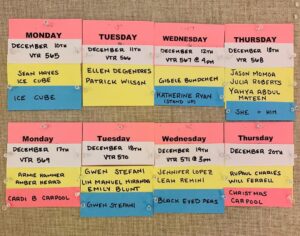 MONDAY
DECEMBER 10TH
VTR 565
SEAN HAYES
ICE CUBE
ICE CUBE
TUESDAY
DECEMBER 11TH
VTR 566
ELLEN DEGENERES
PATRICK WILSON
WEDNESDAY
DECEMBER 12TH
VTR 567 @ 4pm
GISELE BUNDCHEN
KATHERINE RYAN
(STAND UP)
THURSDAY
DECEMBER 13TH
VTR 568
JASON MOMOA
JULIA ROBERTS
YAHYA ABDUL
MATEEN
SHE + HIM
Monday
DECEMBER 17TH
VTR 569
ARMIE HAMMER
AMBER HEARD
CARDI B CARPOOL
Tuesday
DECEMBER 18TH
VTR 570
GWEN STEFANI
LIN MANUEL MIRANDA
EMILY BLUNT
GWEN STEFANI
Wednesday
DECEMBER 19TH
VTR 571 @ 3pm
JENNIFER LOPEZ
LEAH REMINI
BLACK EYED PEAS
Thursday
DECEMBER 20TH
RUPAUL CHARLES
WILL FERRELL
CHRISTMAS
CARPOOL